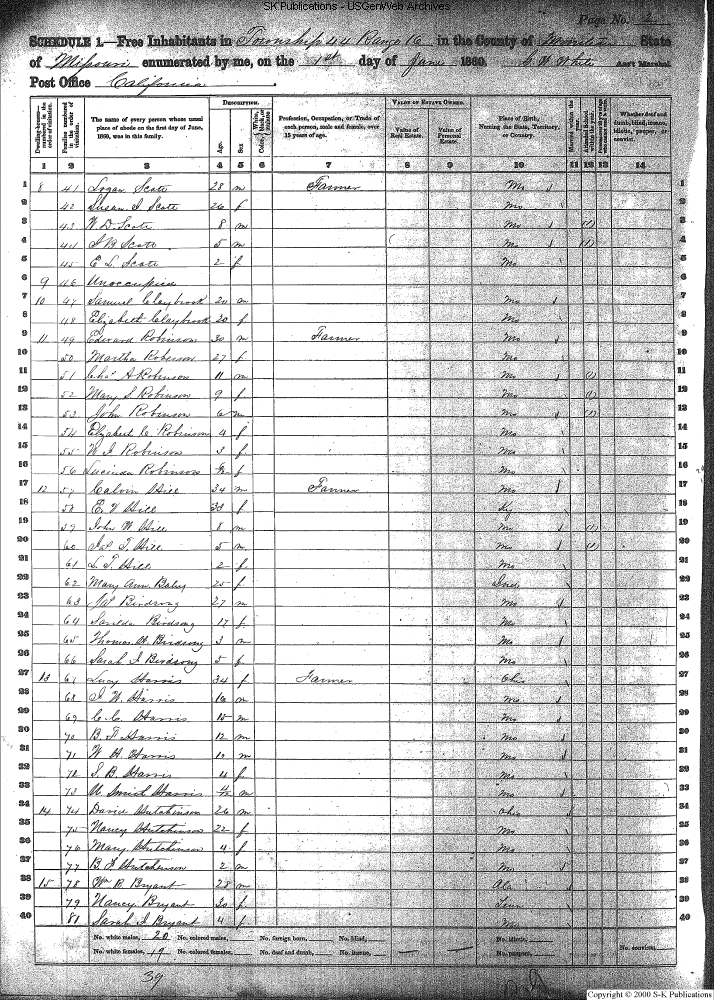 SK Publications - USGenWeb Archives
Page No. 2
SCHEDULE 1.—Free Inhabitants in Township 44 Range 16 in the County of Moniteau State
of Missouri enumerated by me, on the 1st day of June 1860. White Ass't Marshal.
Post Office California
Dwelling-houses—numbered in the order of visitation. Families numbered in the order of visitation. The name of every person whose usual place of abode on the first day of June, 1860, was in this family. DESCRIPTION. Age. Sex. Color, White, black, or mulatto. Profession, Occupation, or Trade of each person, male and female, over 15 years of age. VALUE OF ESTATE OWNED. Value of Real Estate. Value of Personal Estate. Place of Birth, Naming the State, Territory, or Country. Married within the year. Attended School within the year. Whether deaf and dumb, blind, insane, idiotic, pauper, or convict.
1 2 3 4 5 6 7 8 9 10 11 12 13 14
1 8 41 Logan Scott 28 m Farmer Mo 1
2 42 Susan J Scott 26 f Mo 2
3 43 W D Scott 8 m Mo (1) 3
4 44 J B Scott 5 m Mo (1) 4
5 45 E L Scott 2 f Mo 5
6 9 46 Unoccupied 6
7 10 47 Samuel Claybrook 20 m Mo 7
8 48 Elizabeth Claybrook 20 f Mo 8
9 11 49 Edward Robinson 30 m Farmer Mo 9
10 50 Martha Roberson 27 f Mo 10
11 51 Chas A Robinson 11 m Mo (1) 11
12 52 Mary S Robinson 9 f Mo (1) 12
13 53 John Robinson 6 m Mo (1) 13
14 54 Elizabeth C Robinson 4 f Mo 14
15 55 W J Robinson 3 f Mo 15
16 56 Lucinda Robinson f Mo 16
17 12 57 Calvin Hill 34 m Farmer Mo 17
18 58 E Hill 33 f Ky 18
19 59 John W Hill 8 m Mo (1) 19
20 60 Jas T Hill 5 m Mo (1) 20
21 61 L T Hill 2 f Mo 21
22 62 Mary Ann 25 f Ind 22
23 63 Jas Birdsong 27 m Mo 23
24 64 Birdsong 17 f Mo 24
25 65 Thomas H Birdsong 3 m Mo 25
26 66 Sarah J Birdsong 5 f Mo 26
27 13 67 Lucy Harris 34 f Farmer Ohio 27
28 68 J W Harris 16 m Mo 28
29 69 C C Harris 15 m Mo 29
30 70 B F Harris 12 m Mo 30
31 71 W H Harris 10 m Mo 31
32 72 S B Harris 4 f Mo 32
33 73 Harris m Mo 33
34 14 74 David Hutchinson 26 m Ohio 34
35 75 Nancy Hutchinson 22 f Mo 35
36 76 Mary Hutchinson 4 f Mo 36
37 77 B F Hutchinson 2 m Mo 37
38 15 78 Wm B Bryant 28 m Ala 38
39 79 Nancy Bryant 30 f Tenn 39
40 81 Sarah J Bryant 4 f Mo 40
No. white males, 20 No. colored males, No. foreign born, No. blind, No. idiotic,
No. white females, 19 No. colored females, No. deaf and dumb, No. insane, No. paupers, No. convicts,
39
Copyright © 2000 S-K Publications